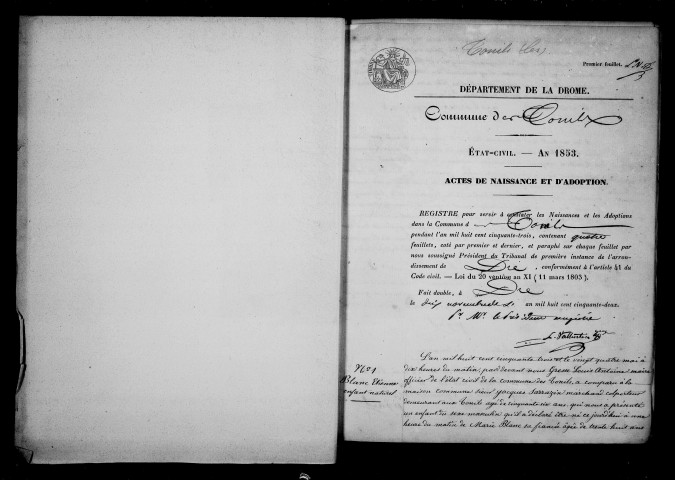 Tonils (les)
Premier feuillet.
DÉPARTEMENT DE LA DROME.
Commune des Tonils
ÉTAT-CIVIL. — AN 1853.
ACTES DE NAISSANCE ET D'ADOPTION.
REGISTRE pour servir à constater les Naissances et les Adoptions
dans la Commune d Tonils
pendant l'an mil huit cent cinquante-trois, contenant quatre
feuillets, coté par premier et dernier, et paraphé sur chaque feuillet par
nous soussigné Président du Tribunal de première instance de l'arron-
dissement de Die, conformément à l'article 41 du
Code civil. — Loi du 20 ventôse an XI (11 mars 1803).
Fait double, à Die
le novembre an mil huit cent cinquante-deux.
Pr Mr le empêché
N° 1
Blanc Etienne
enfant naturel
L'an mil huit cent cinquante trois et le vingt quatre mai à
dix heures du matin, par devant nous Grosse Louis Antoine maire
officier de l'état civil de la commune des Tonils, a comparu à la
maison commune sieur Jacques Sarrazin marchand colporteur
demeurant aux Tonils agé de cinquante six ans, qui nous a présenté
un enfant du sexe masculin qu'il a déclaré être né ce jourd'hui à une
heure du matin de Marie Blanc sa fiancée âgée de trente huit ans